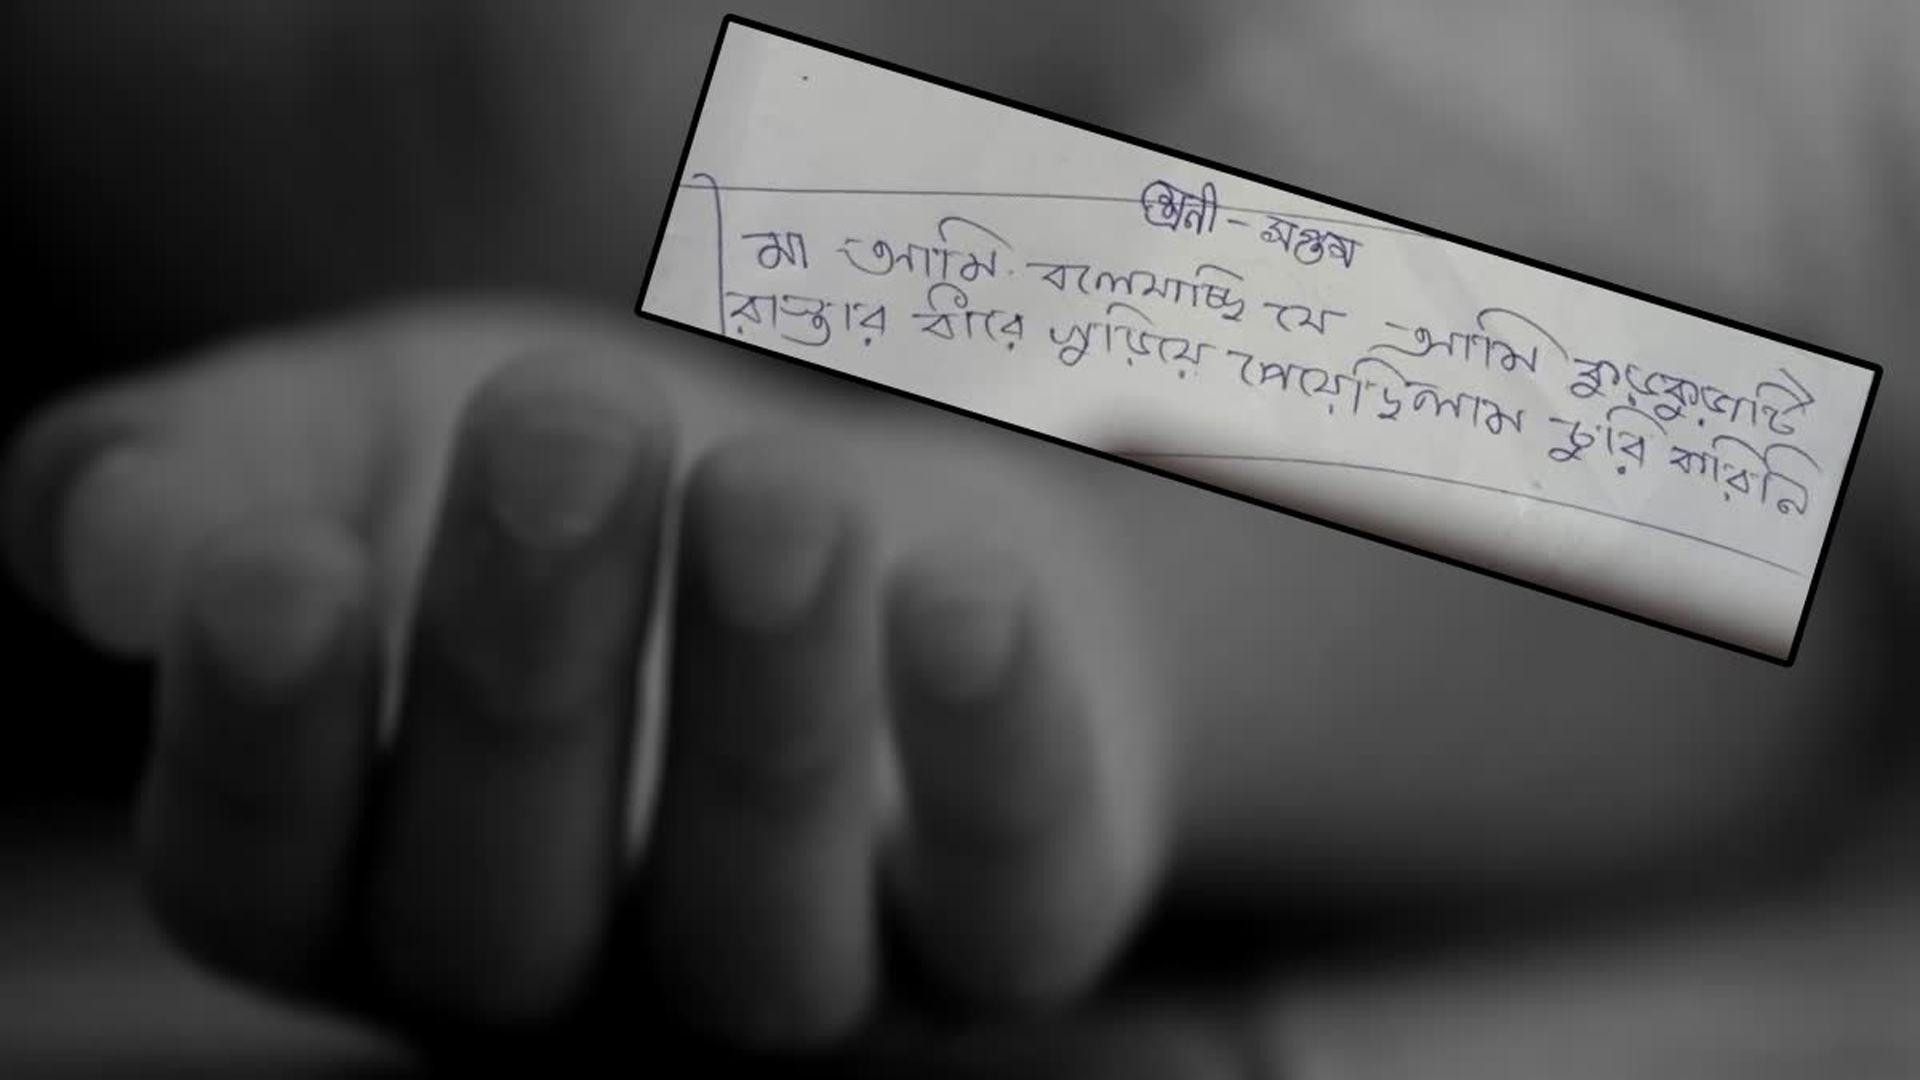 শ্রেনী - সপ্তম
মা আমি বলেযাচ্ছি যে আমি কুড়কুড়াটি
রাস্তার ধারে কুড়িয়ে পেয়েছিলাম চুরি করিনি